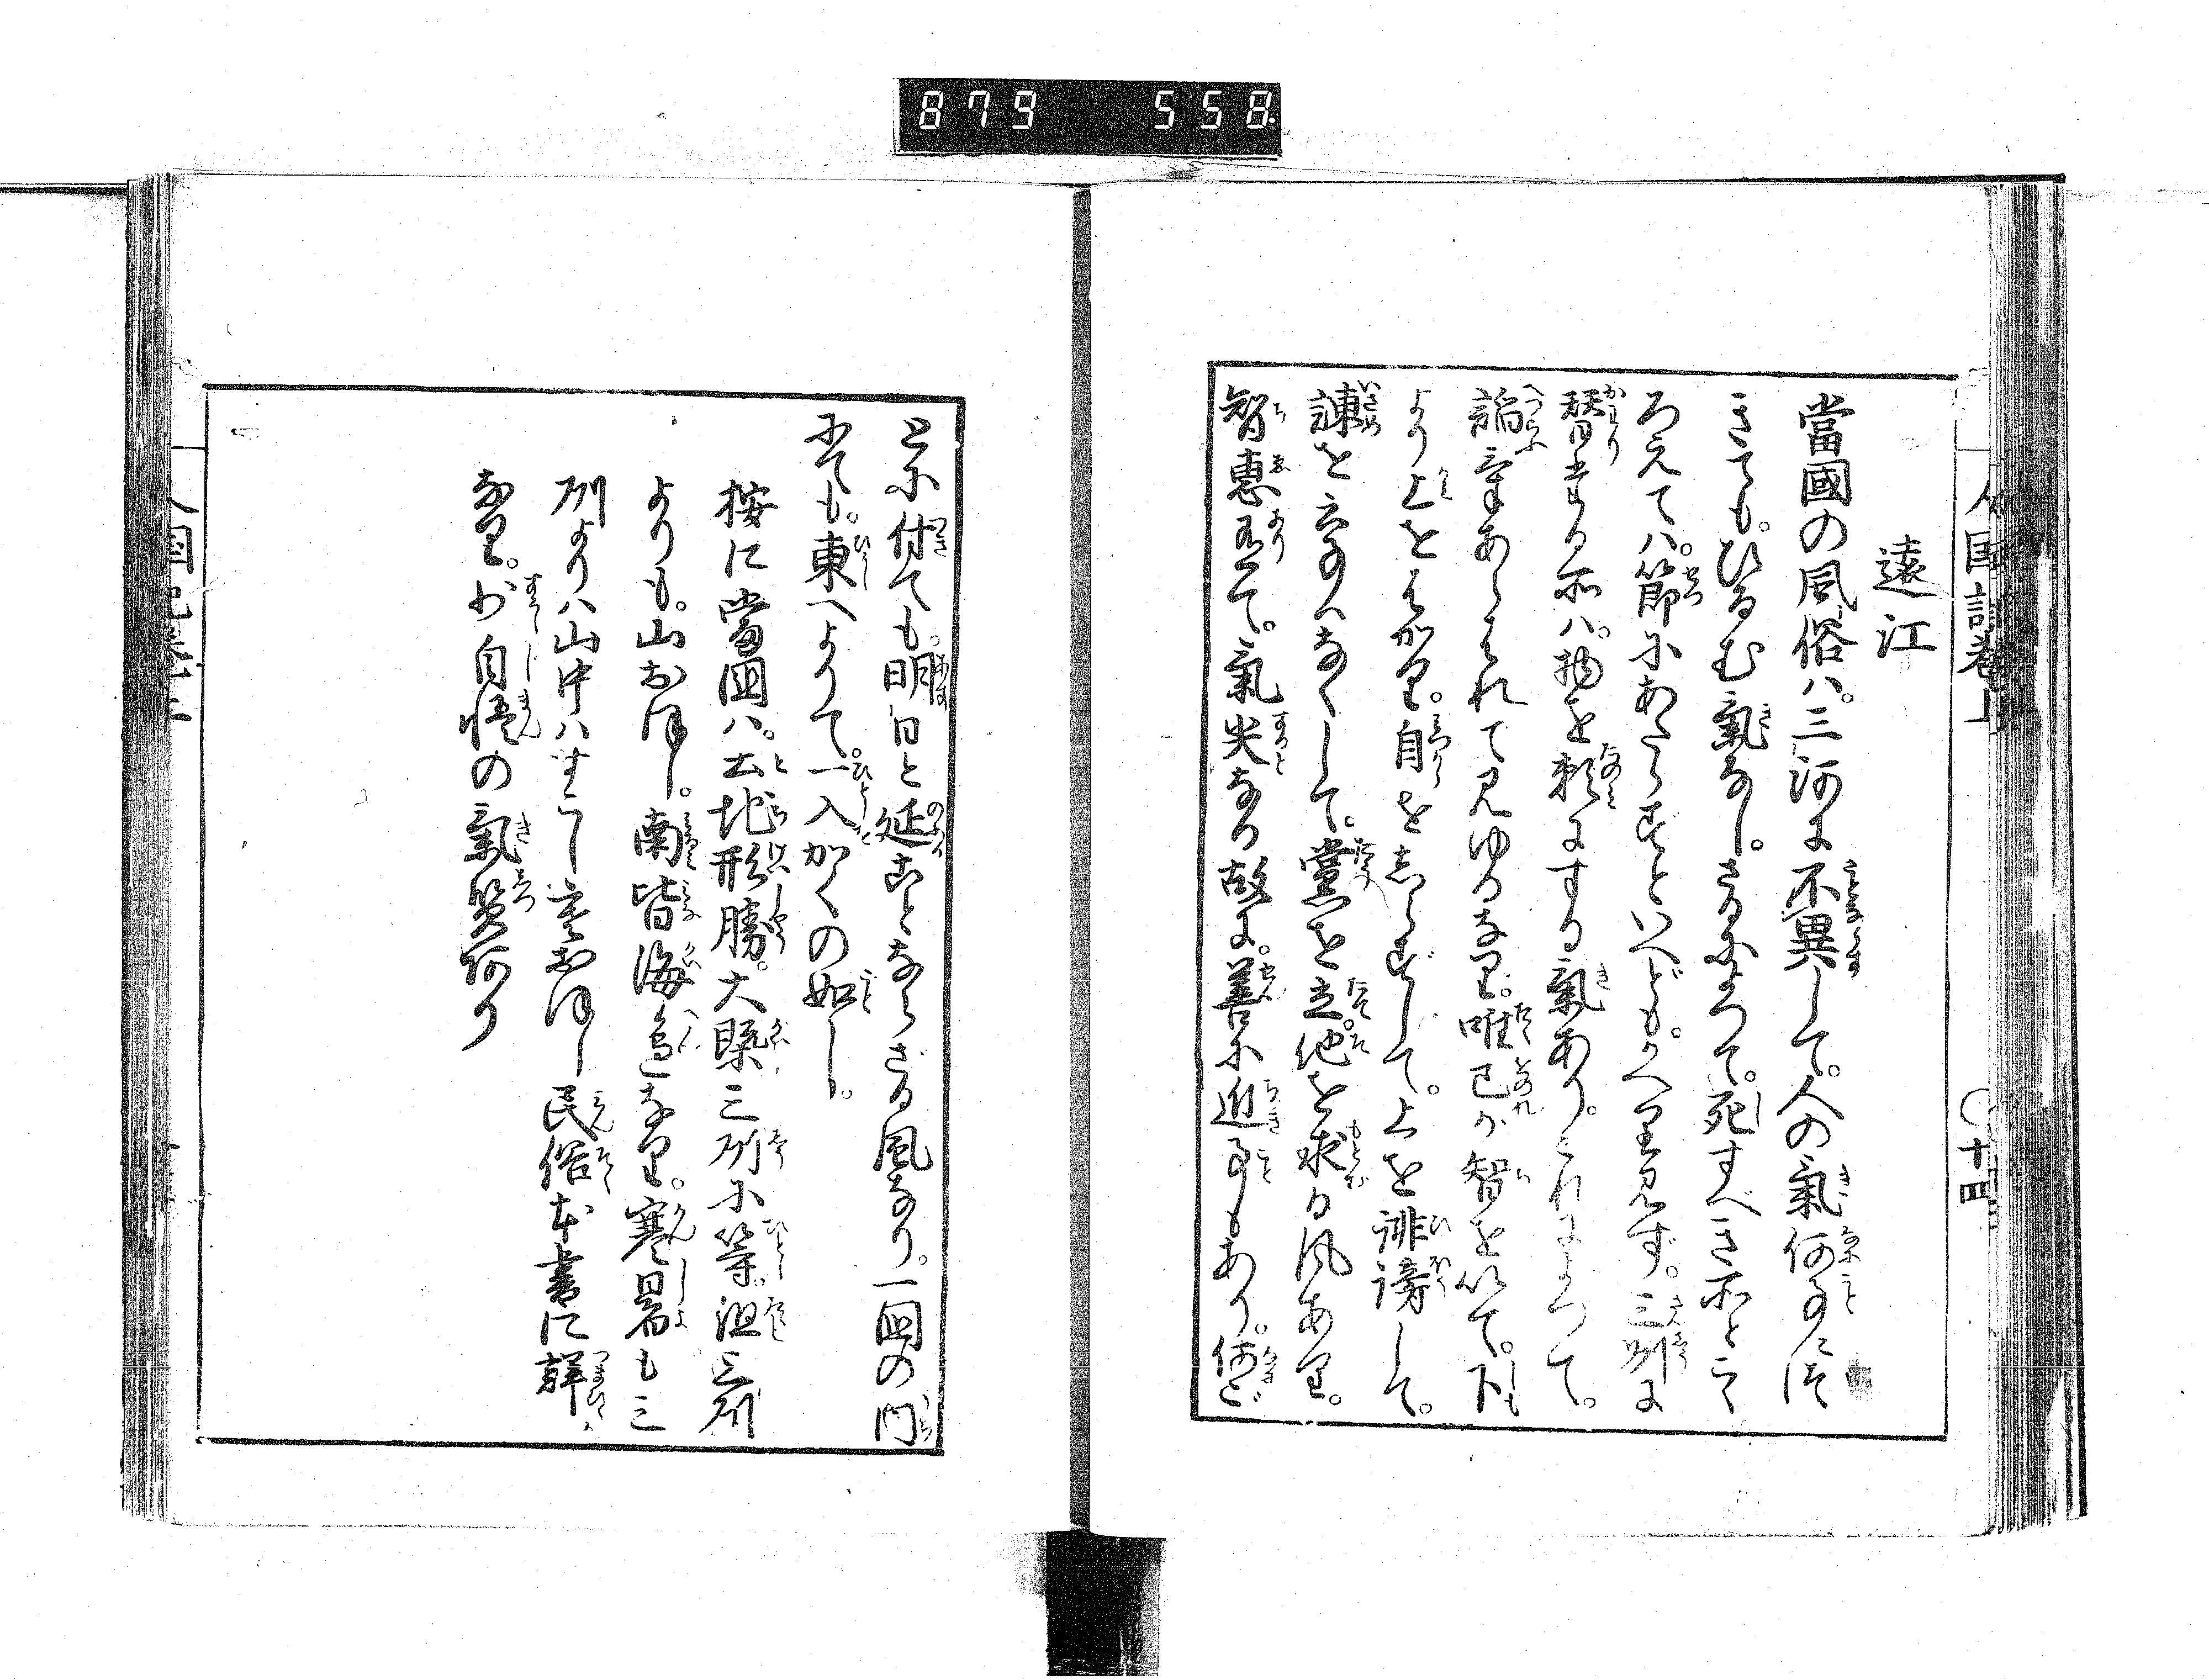 879 558
人国記卷上 〇十四
遠江
當國の風俗ハ。三河に不異して。人の氣何事につ
きても。ひるむ氣なし。さるによつて。死すべき所とこゝ
ろえてハ。節にあたらずといへども。かへり見ず。三州に
替する所ハ。物を頼にする氣あり。これによつて。
諂意あらはれて見ゆるなり。唯己が智を以て。下
より上をはかり。自をしらずして。上を誹謗して。
諫を云事ハなくして。黨を立。他を求る風あり。
智恵有て。氣失なる故に。善に近事もあり。何ど
とに付ても。明日と延ることならざる風なり。一國の内
にても。東へよりて。一入かくの如し。
按に當國ハ。土地形勝。大槩三州に等。但三州
よりも。山おほし。南皆海邊なり。寒暑も三
州よりハ山中ハすこし寒おほし民俗本書に詳
なり。少自慢の氣質有り